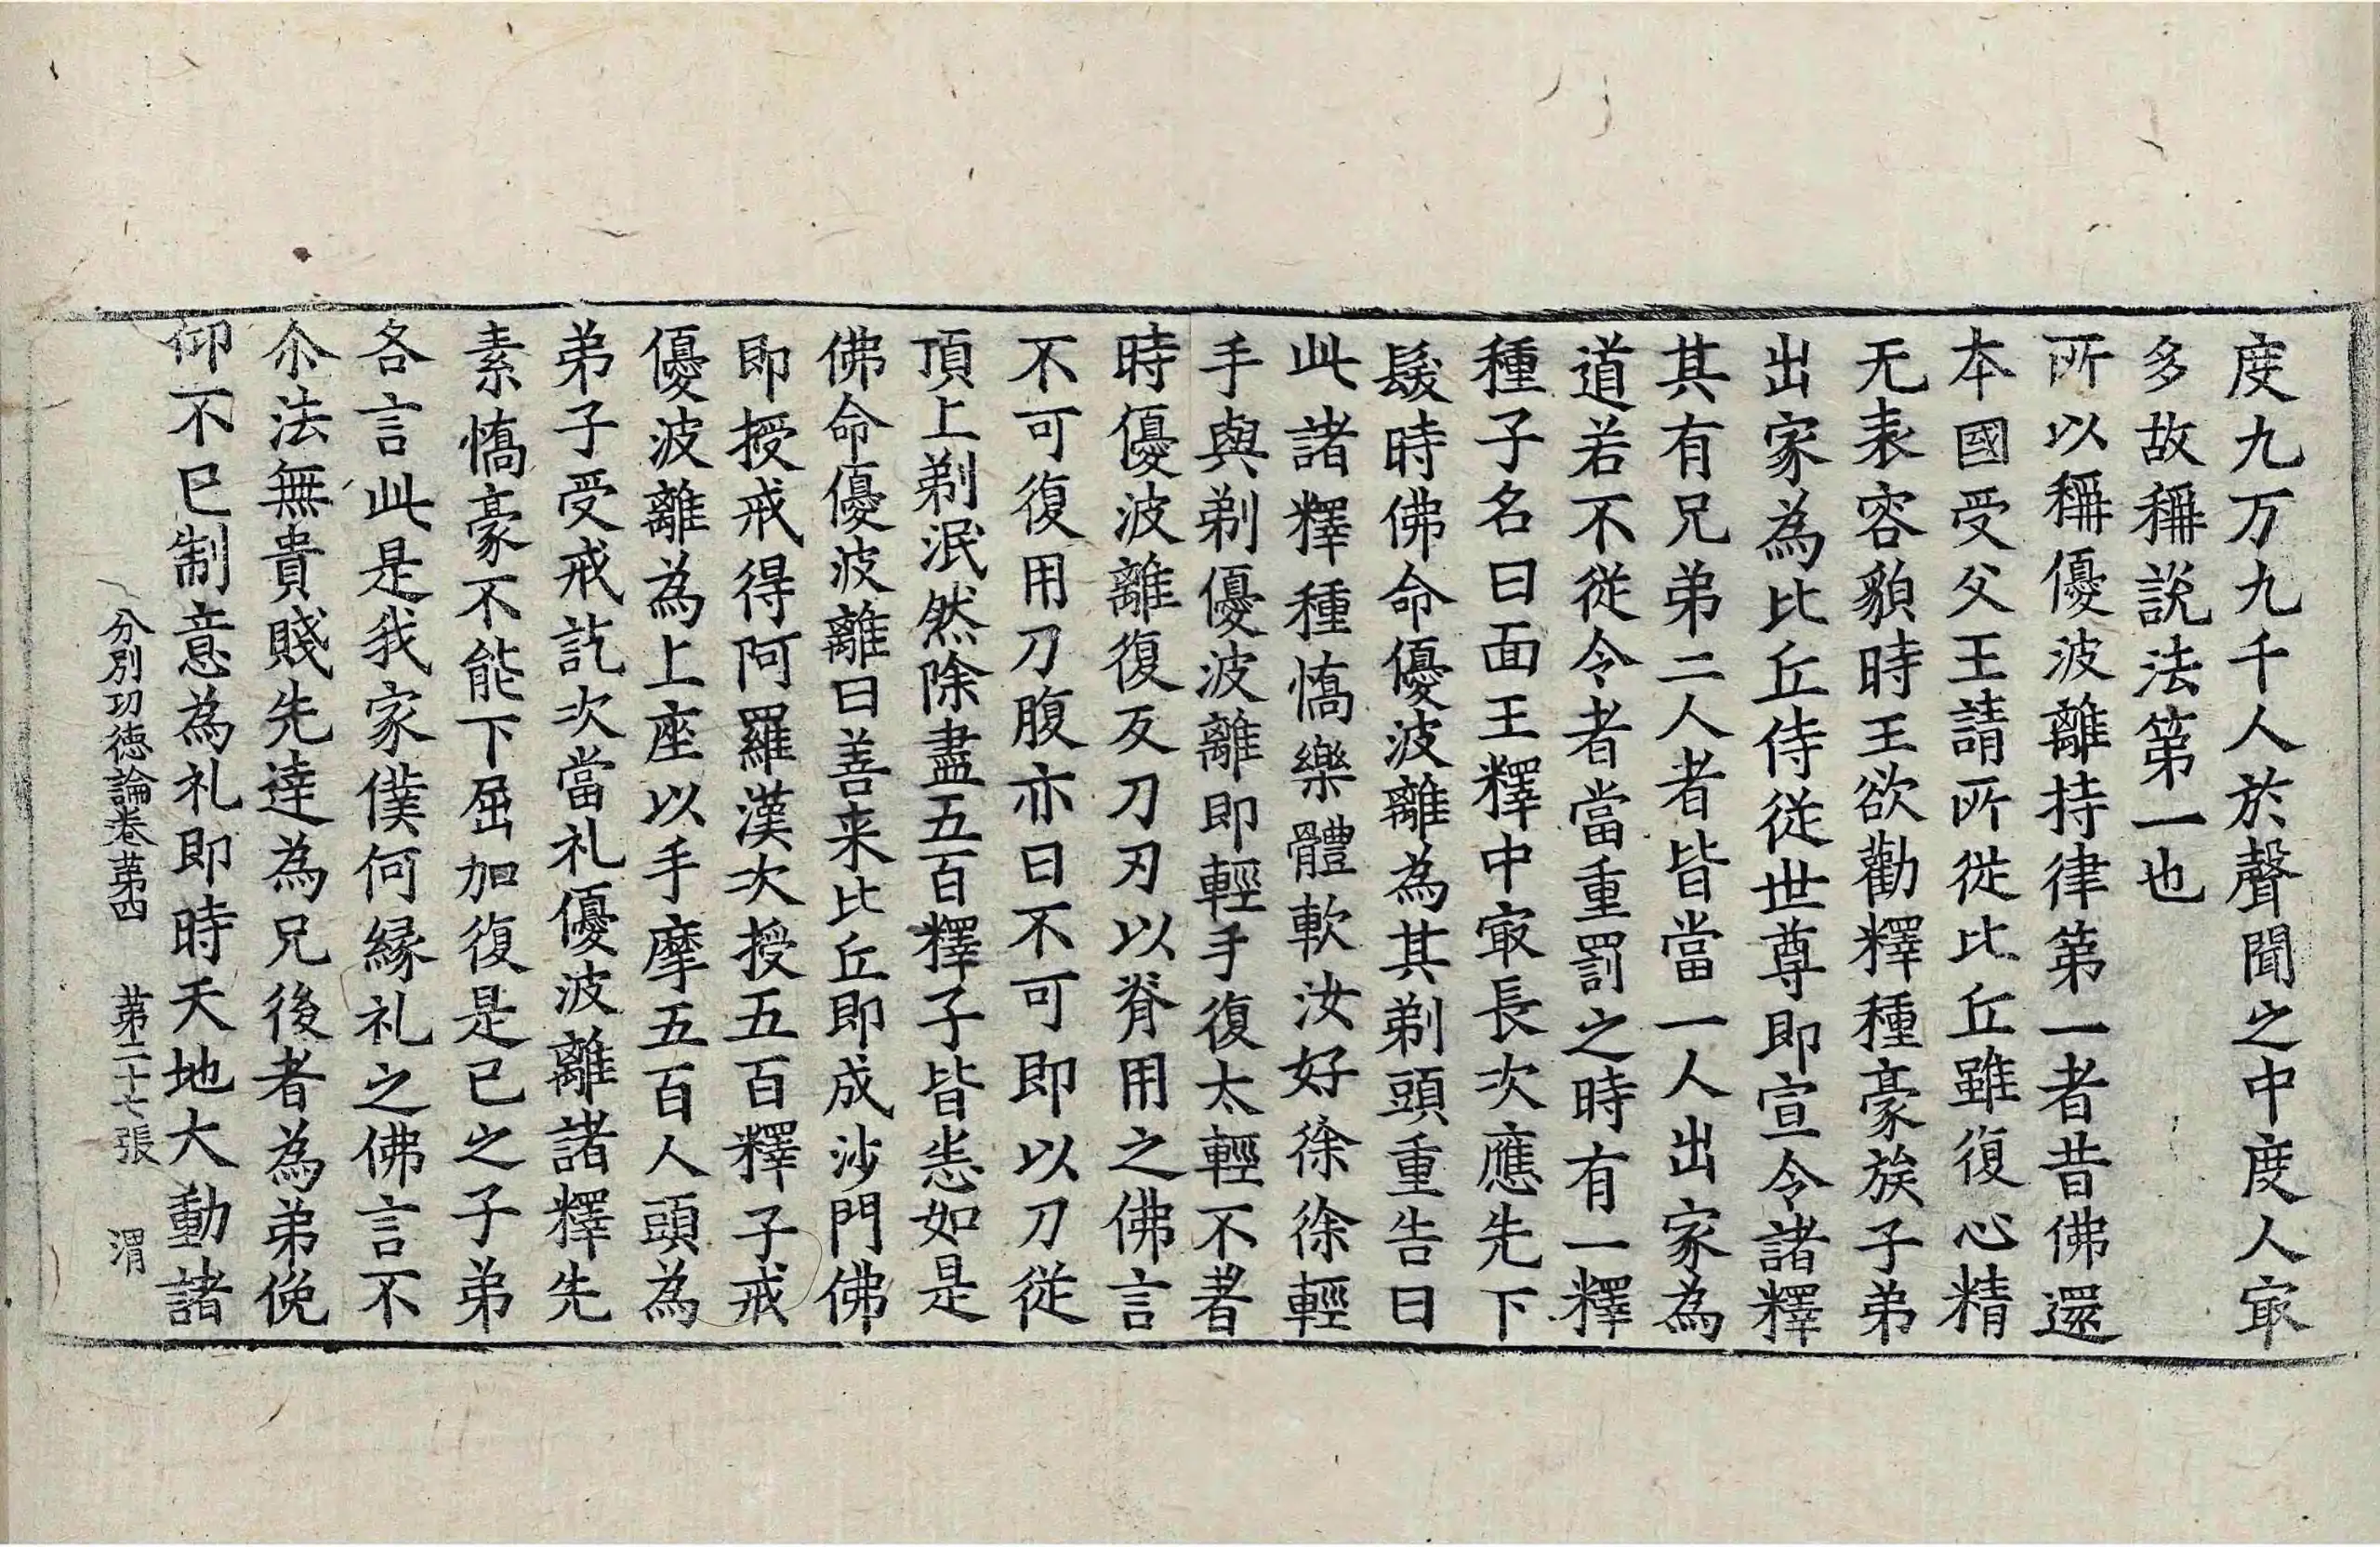 度九万九千人於聲聞之中度人㝡
多故稱説法第一也
所以稱優波離持律第一者昔佛還
本國受父王請所從比丘雖復心精
无表容貌時王欲勸釋種豪族子弟
出家為比丘侍從世尊即宣令諸釋
其有兄弟二人者皆當一人出家為
道若不從令者當重罰之時有一釋
種子名曰面王釋中㝡長次應先下
髮時佛命優波離為其剃頭重告曰
此諸釋種憍樂體軟汝好徐徐輕
手與剃優波離即輕手復太輕不著
時優波離復反刀刃以脊用之佛言
不可復用刀腹亦曰不可即以刀從
頂上剃泯然除盡五百釋子皆恙如是
佛命優波離曰善来比丘即成沙門佛
即授戒得阿羅漢次授五百釋子戒
優波離為上座以手摩五百人頭為
弟子受戒訖次當礼優波離諸釋先
素憍豪不能下屈加復是已之子弟
各言此是我家僕何縁礼之佛言不
尒法無貴賤先達為兄後者為弟俛
仰不已制意為礼即時天地大動諸
分別功德論卷第四　第二十七張　渭